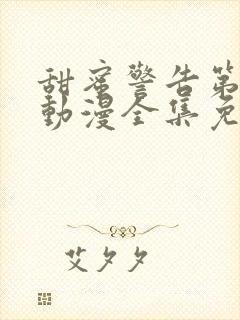 甜蜜警告第
動漫全集免
艾夕夕